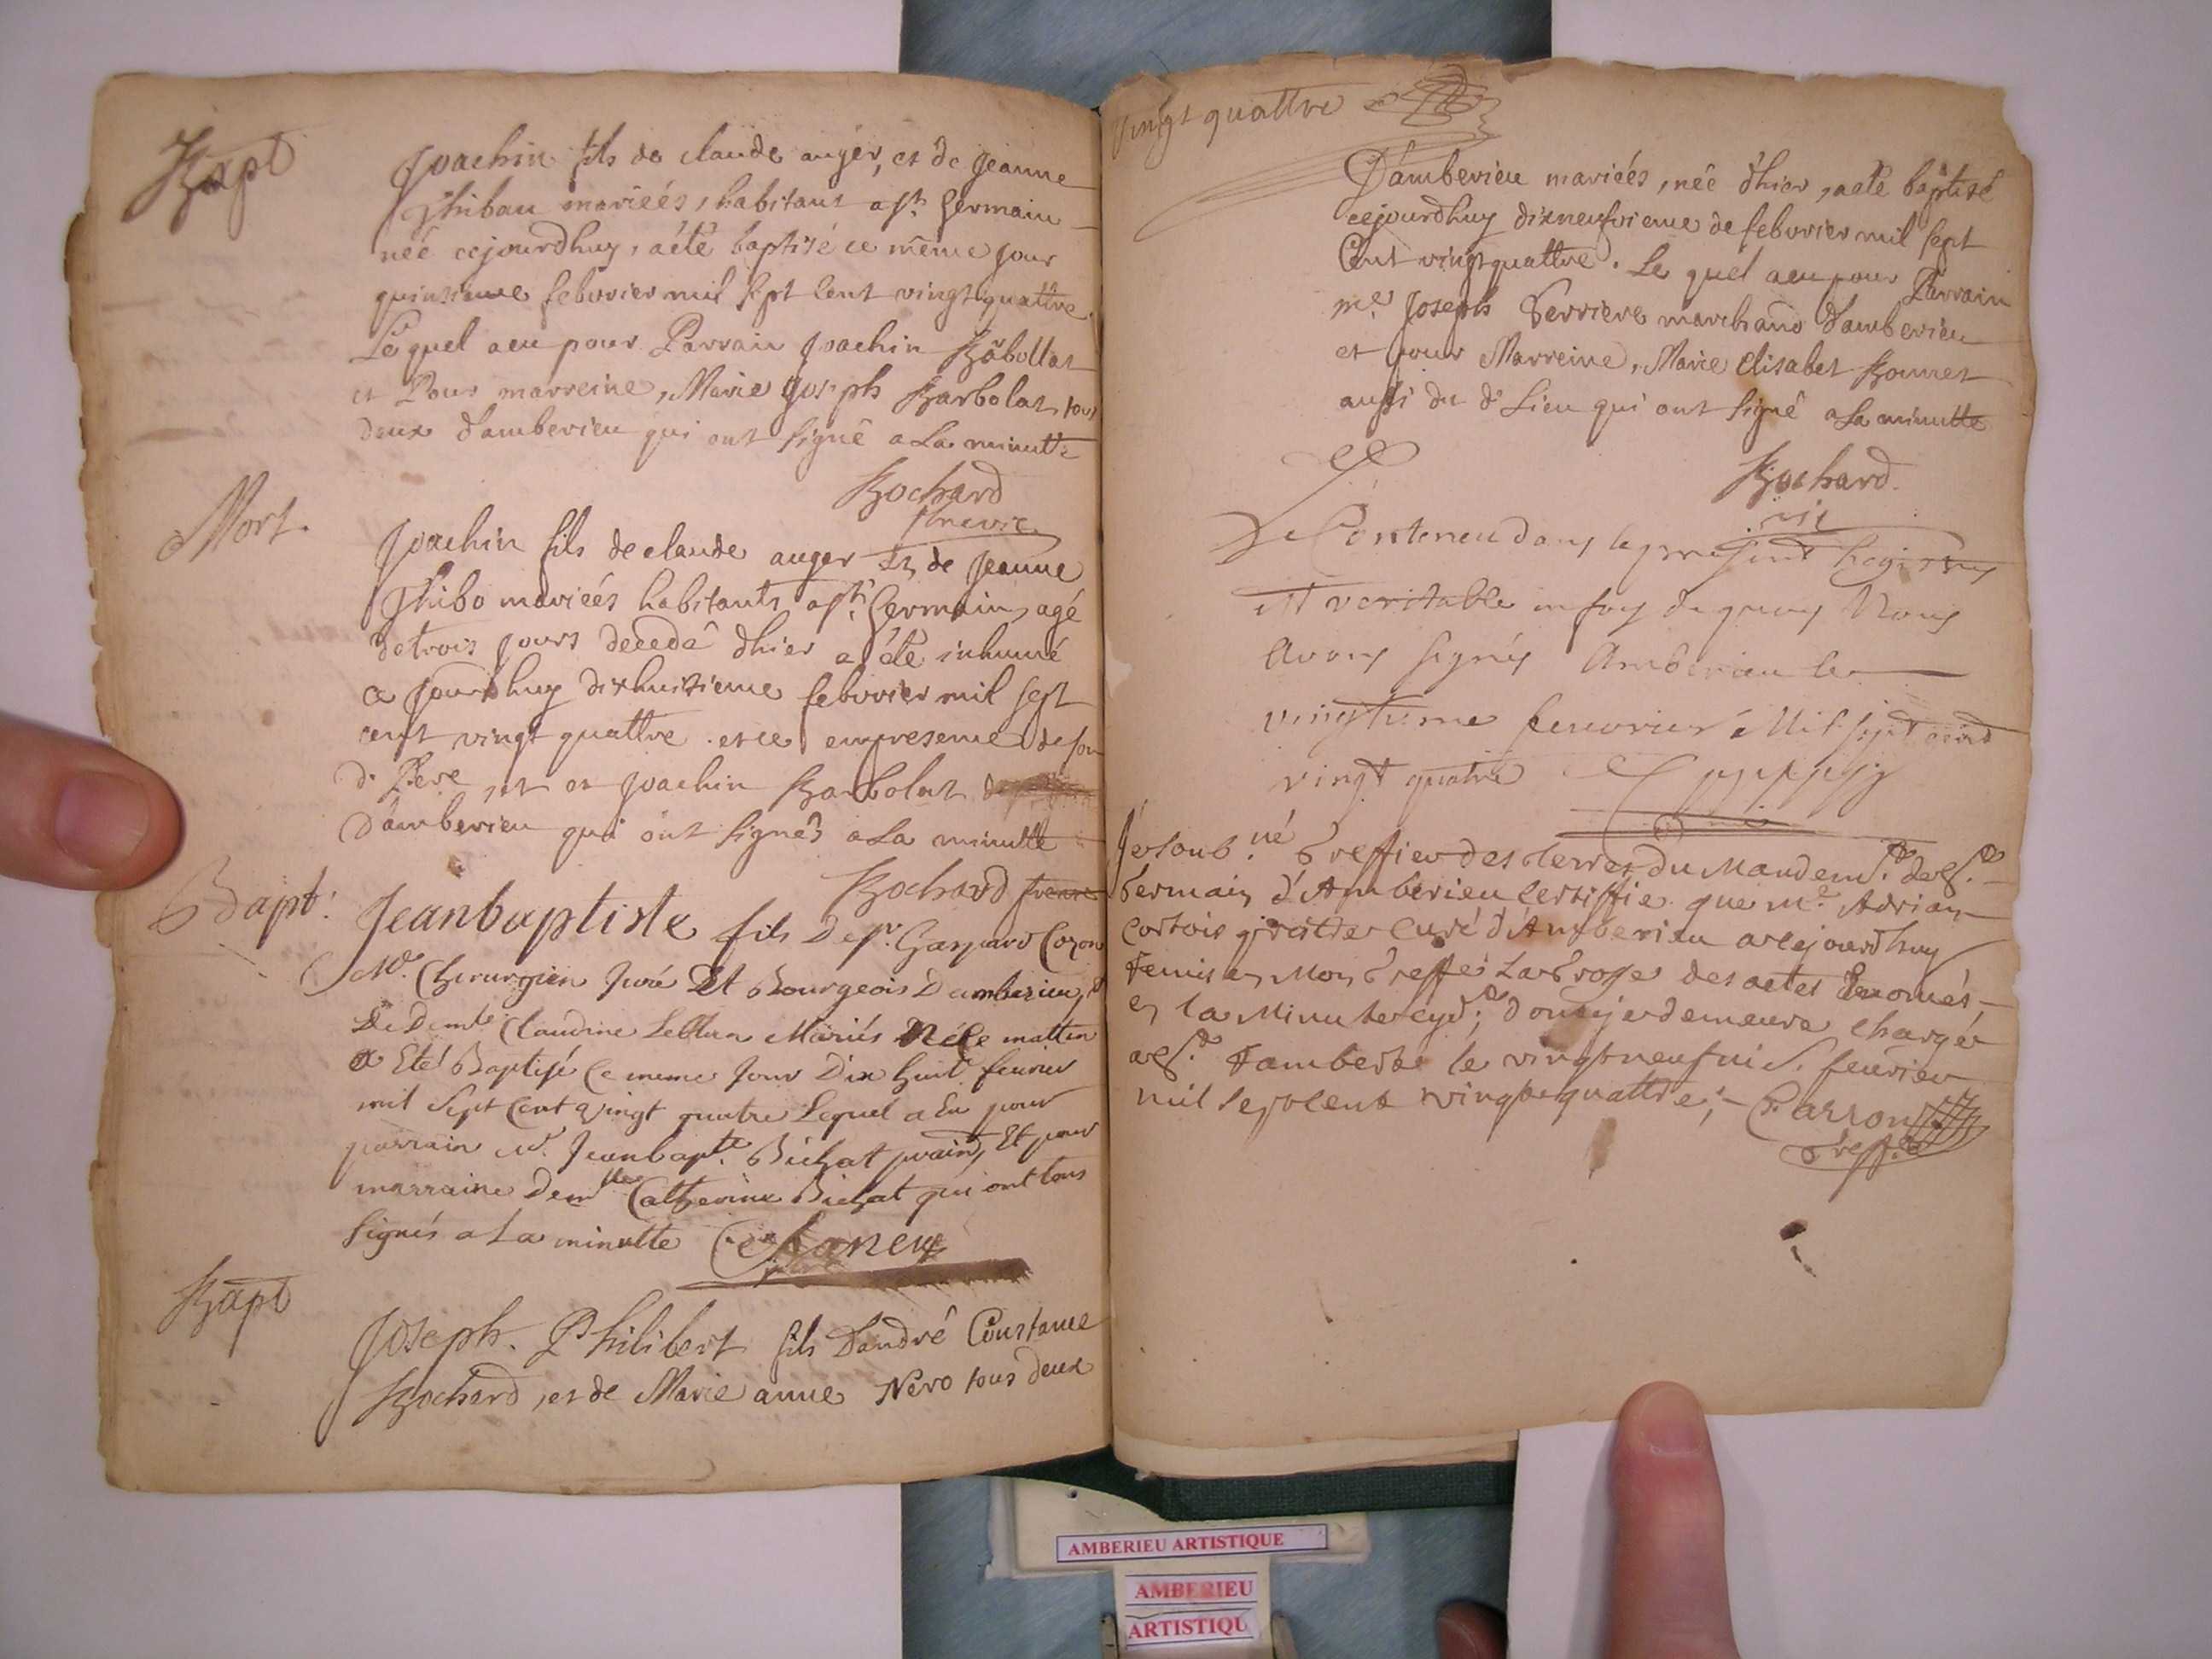 Bapt
Joachin fils de claude auger, et de Jeanne
Thibau mariéés, habitant a st. Germain
néé cejourdhuy, aété baptisé ce même jour
quinsieme febvrier mil sept Cent vingt quattre.
Lequel aeu pour Parrain Joachin
et Pour marreine, Marie Joseph Barbolat tous
deux d'amberieu qui ont signé a La minutte
Bochard
Mort.
Joachin fils de claude auger et de Jeanne
Thibo mariéés habitants a st. Germain, agé
de trois jours decedé dhier a été inhumé
a jourdhuy dixhuitieme febvrier mil sept
cent vingt quattre et ce en presence de son
d. Pere et Joachin Barbolat
d'amberieu qui ont signés a La minutte
Bochard
Bapt.
Jeanbaptiste fils De sr. Gaspard Cozon
Me. Chirurgien Juré Et Bourgeois Damberieu, et
De Demlle Claudine Leblun Mariés Né Ce mattin
a Eté Baptisé Ce meme Jour Dix huit feurier
mil Sept Cent Vingt quatre Lequel a Eu pour
parrain Jeanbapte. Bichat Et pour
marraine Demlle Catherine Bichat qui ont tous
signés a La minutte
Bapt
Joseph. Philibert fils D'andré Constance
Bochard, et de Marie anne Nero tous deux
vingt quattre
D'amberieu mariéés, néé d'hier, aeté baptisé
cejourdhuy dixneufvieme de febvrier mil sept
Cent vingt quattre. Le quel aeu pour Parrain
me. Joseph Ferriere marchand d'amberieu
et pour Marreine, Marie Elisabet Bonnet
aussi du d. Lieu qui ont signé a La minutte
Bochard.
Le Conteneu dans le present Registre
est veritable en foy de quoy Nous
Avons signés Amberieu le
vingtieme feuvrier Mil sept cent
vingt quatre
Je soub.né Greffier des terres du Mandemt. de st.
Germain d'Amberieu Certiffie que me. Adrian
Cortois prettre Curé d'Amberieu a cejourdhuy
remis en Mon Greffe La Grosse des actes Enoncés
en la Minute cyd.t; dont je demeure chargé
a st. Rambert le vingt neufuie. feurier
mil sept cent vingt quattre; Carron
Greff.er
AMBERIEU ARTISTIQUE
AMBERIEU
ARTISTIQU